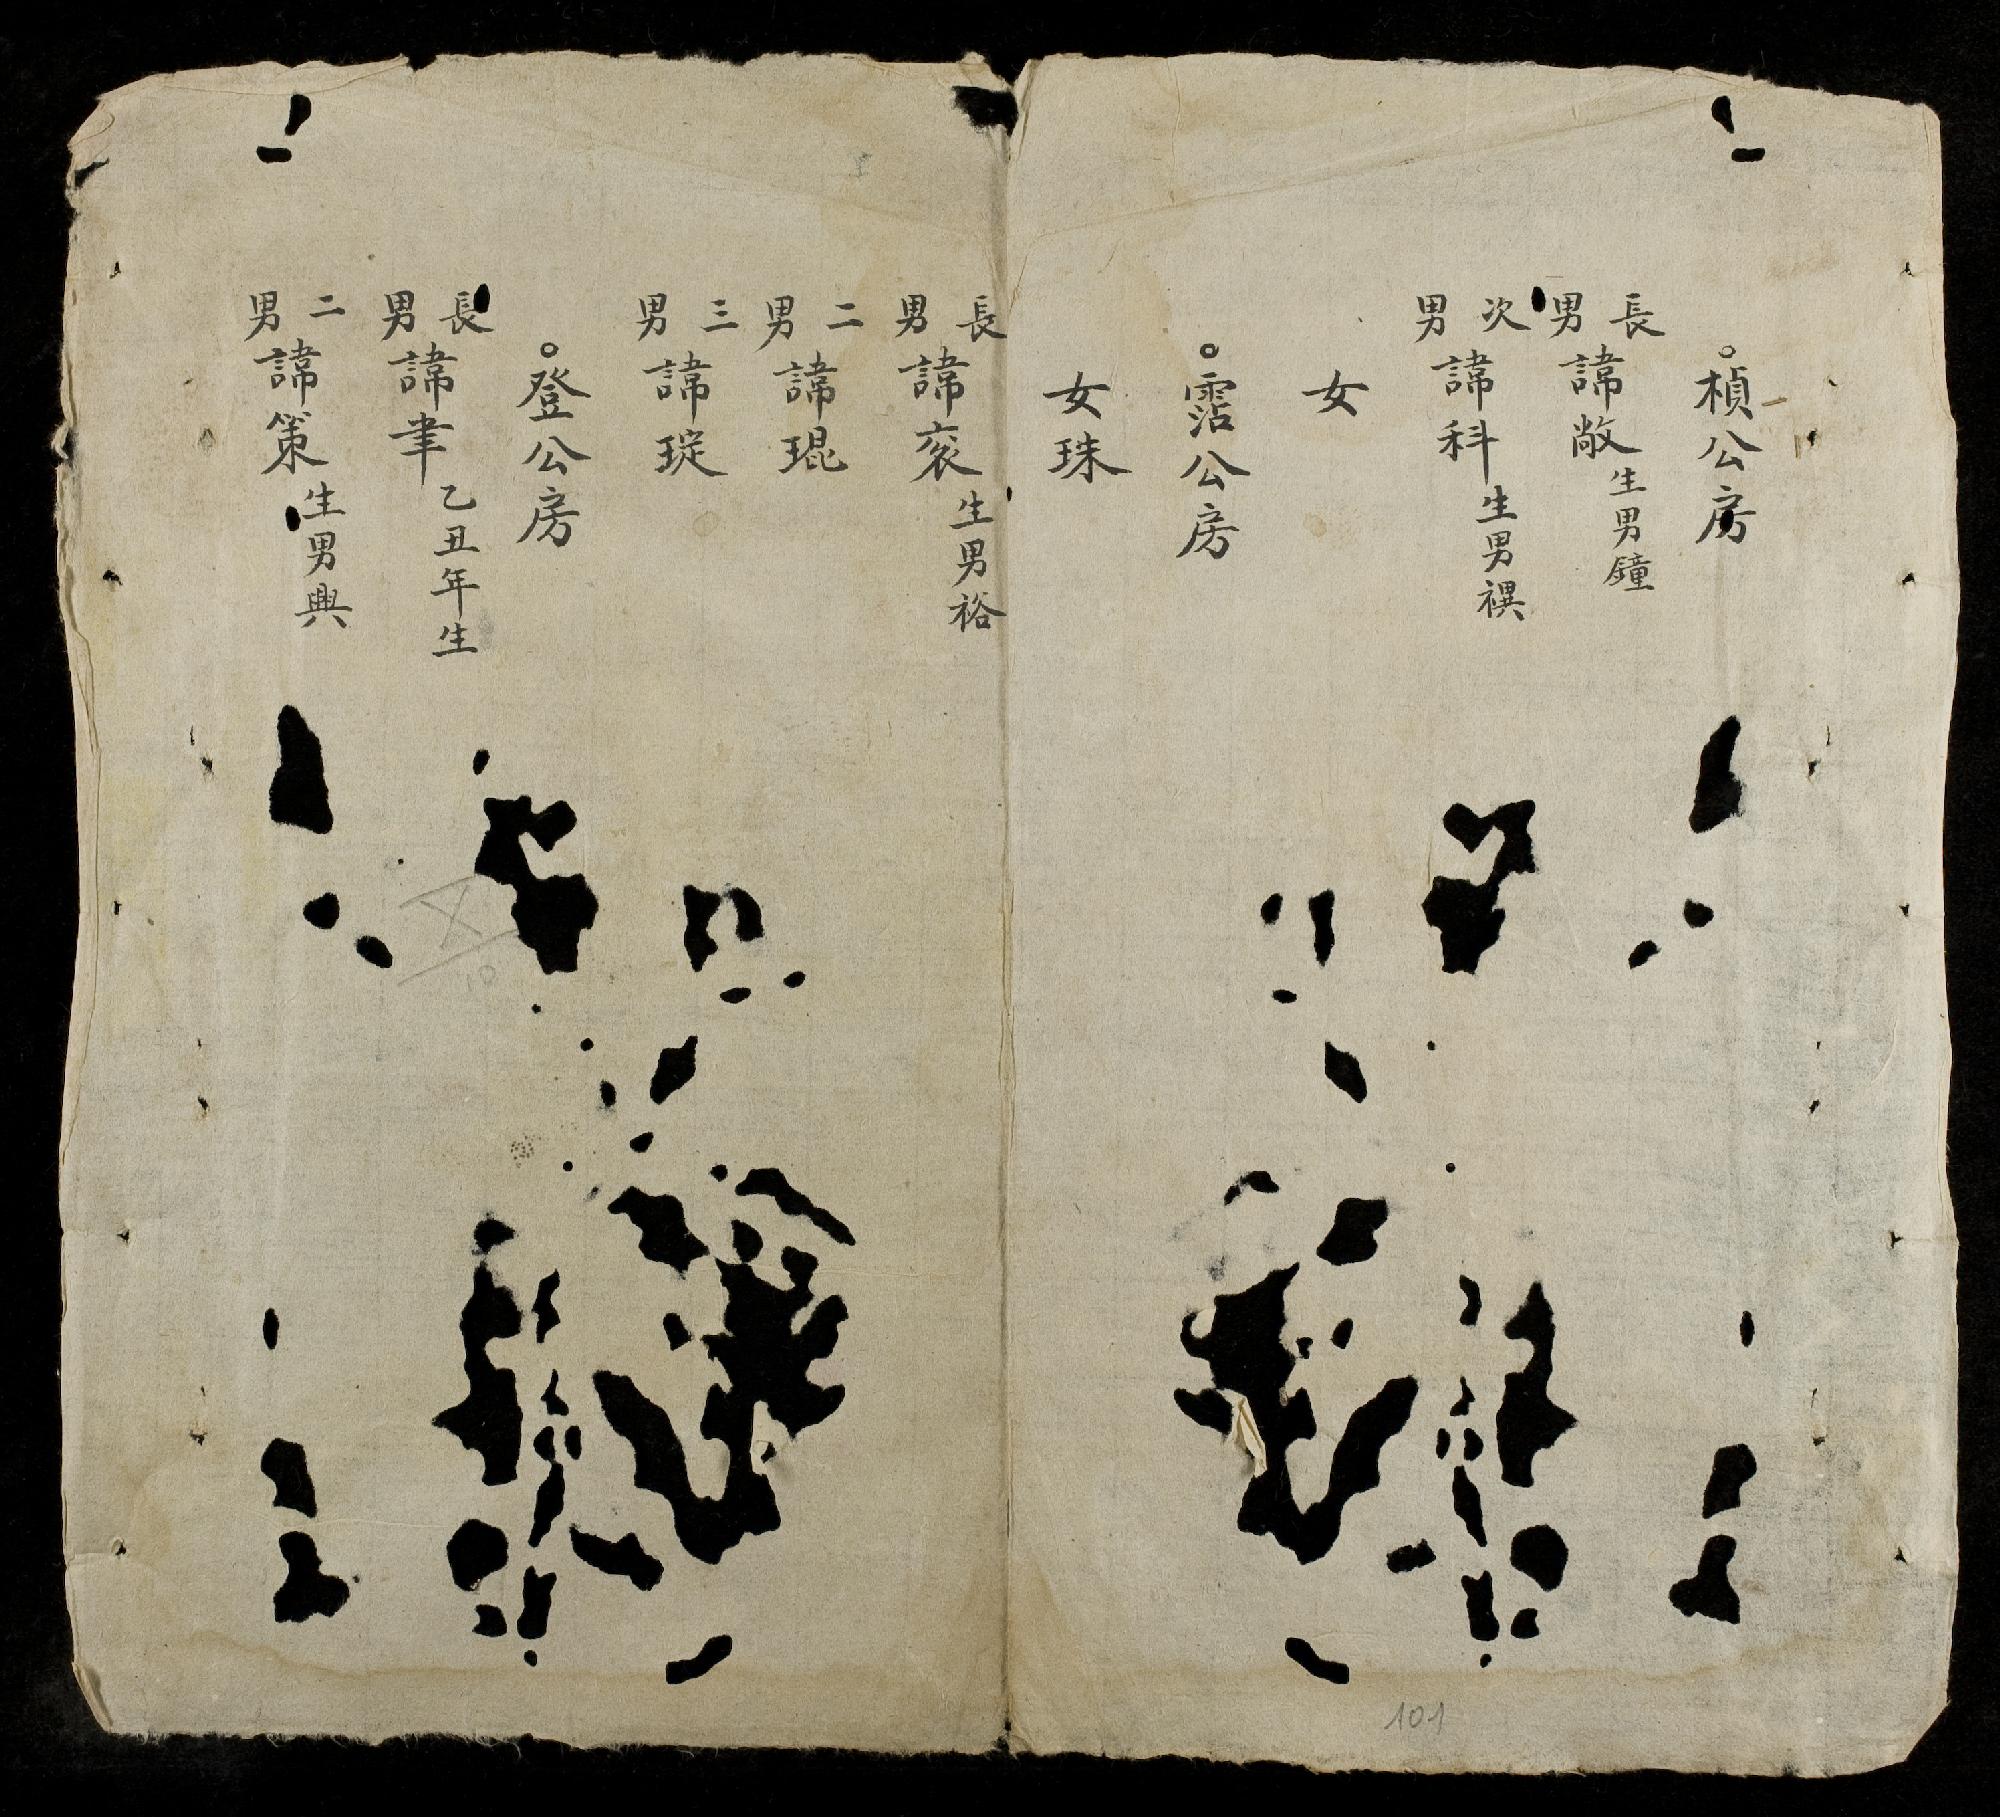 ○楨公房
長男諱敞生男鐘
次男諱科生男禩
女
○霑公房
女珠
長男諱衮生男裕
二男諱琨
三男諱琔
○登公房
長男諱聿乙丑年生
二男諱策生男興
101